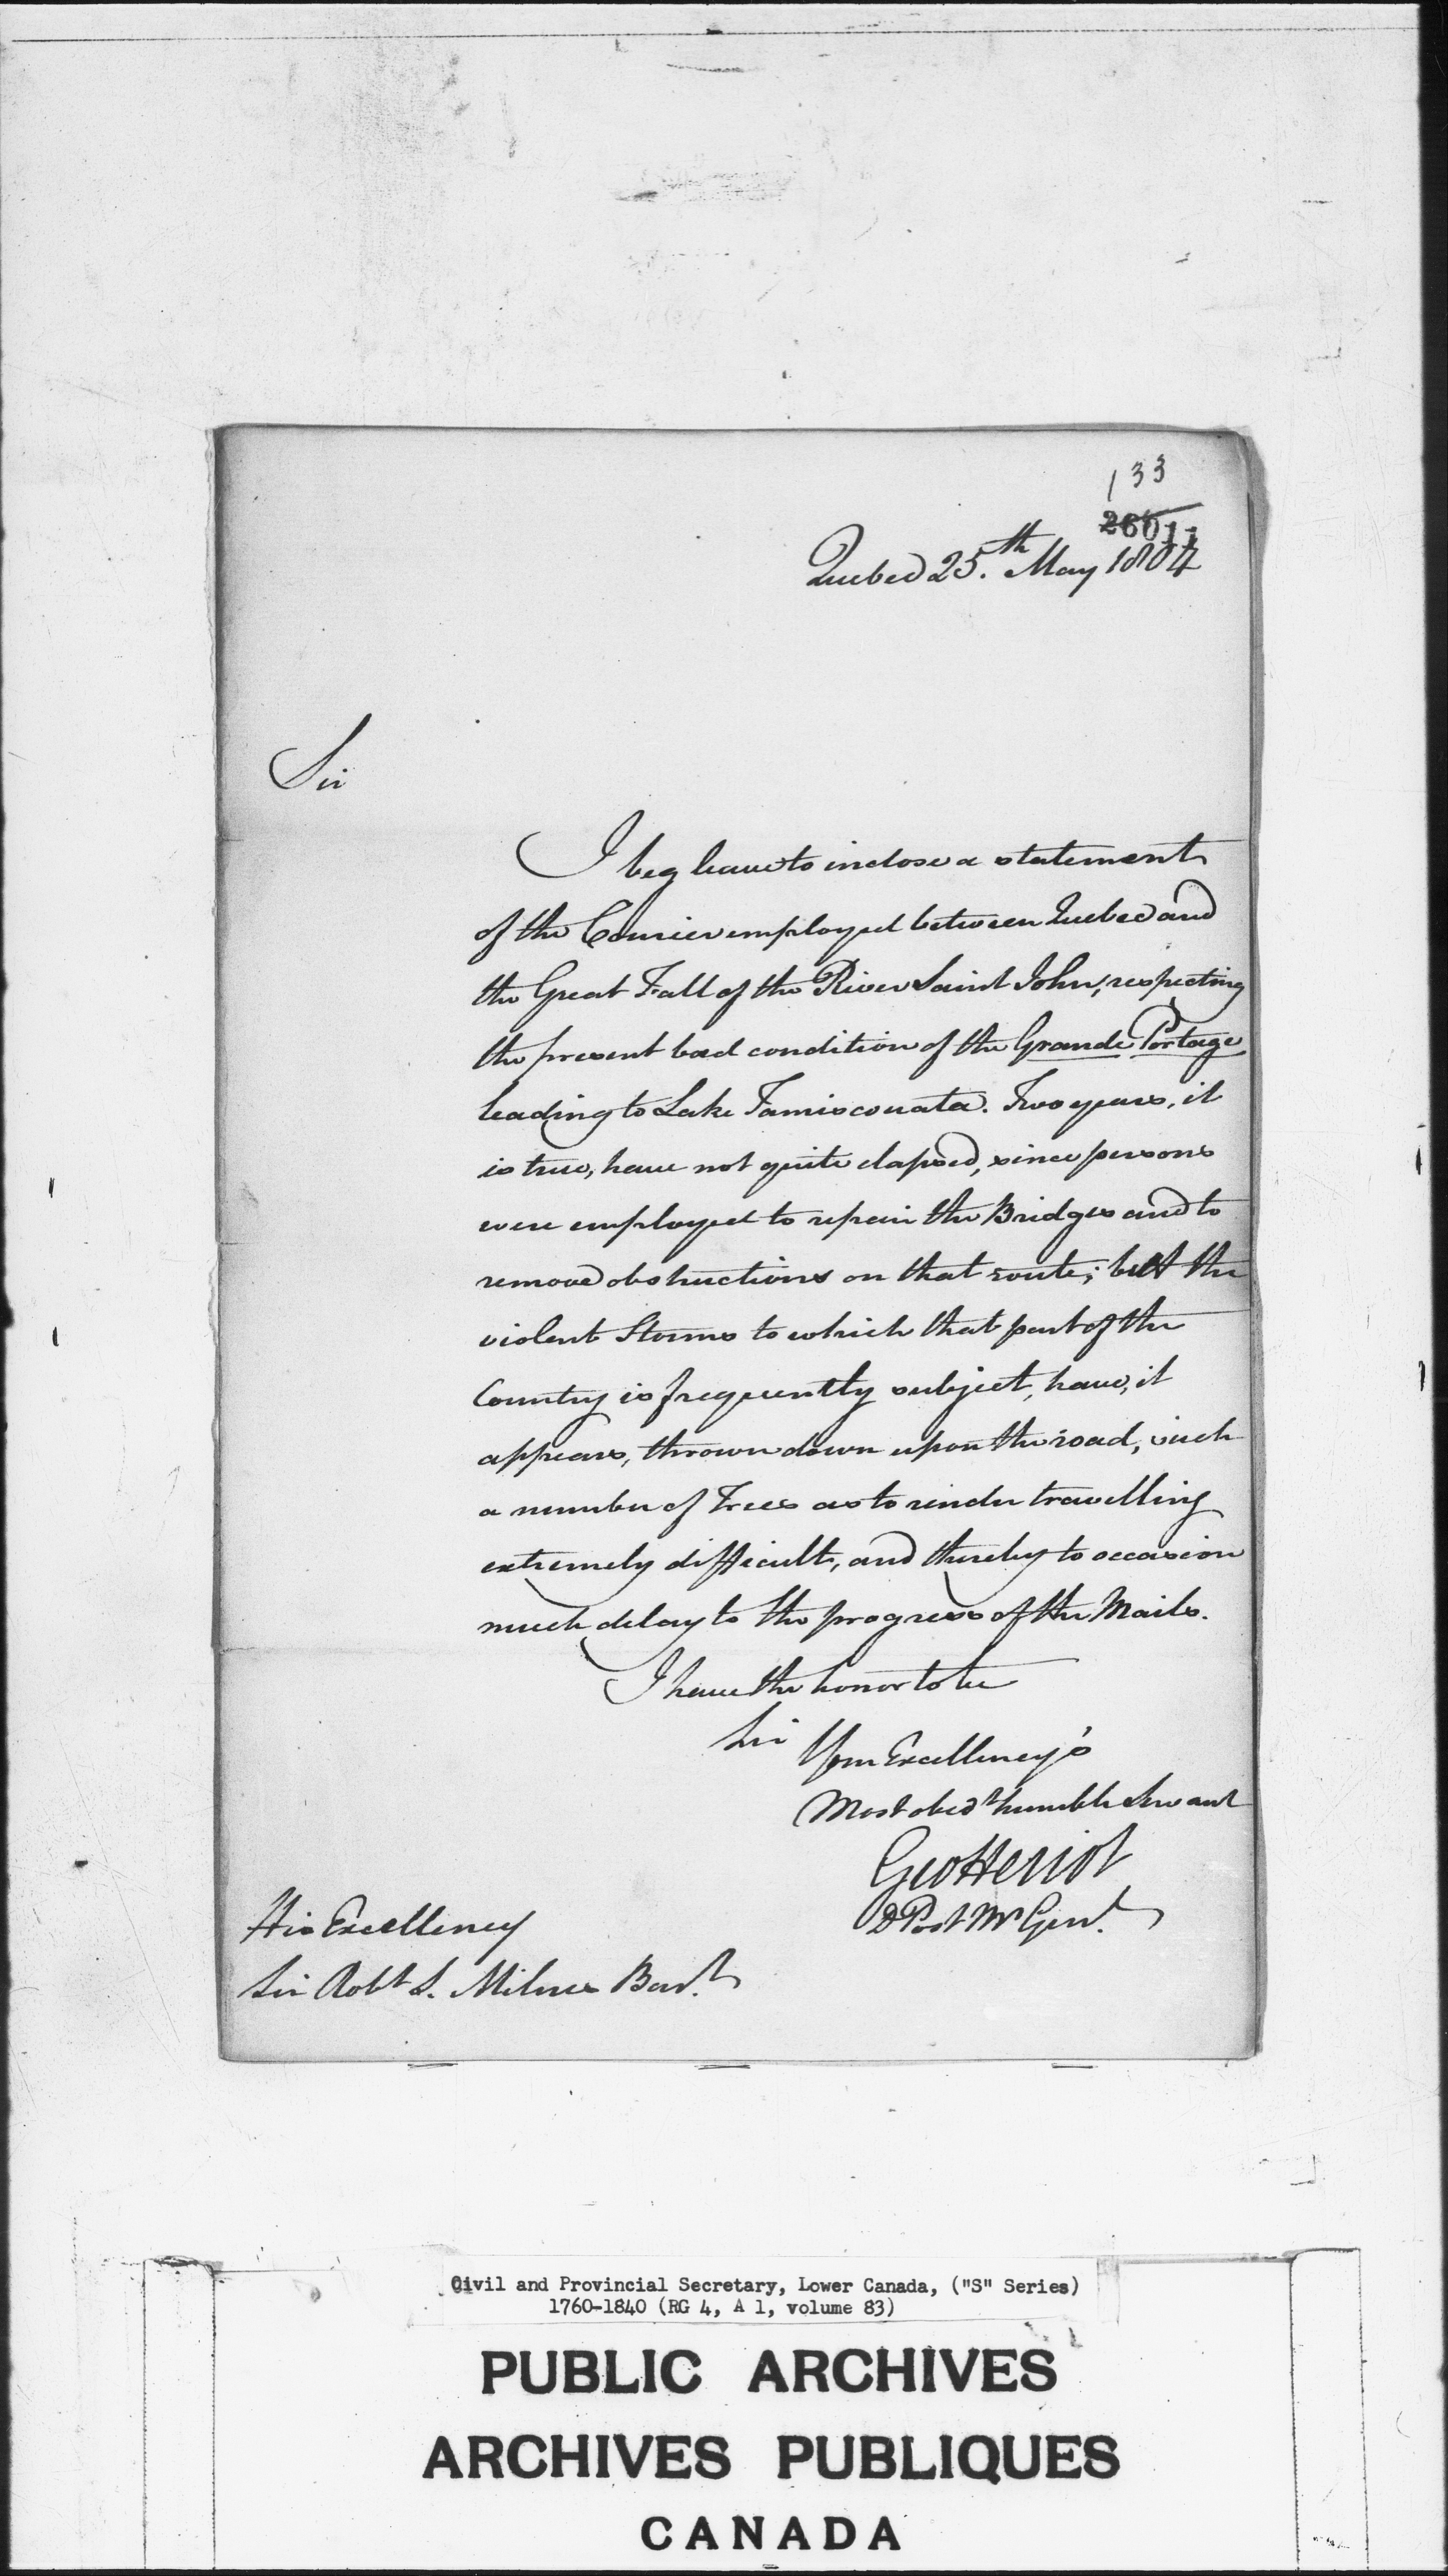 133
26011
Quebec 25.th May 1804
Sir
I beg leave to inclose a statement
of the Courier employed between Quebec and
the Great Fall of the River Saint John, respecting
the present bad condition of the Grande Portage
leading to Lake Tamiscouata. Two years, it
is true, have not quite elapsed, since persons
were employed to repair the Bridges and to
remove obstructions on that route; but the
violent Storms to which that part of the
Country is frequently subject, have, it
appears, thrown down upon the road, such
a number of Trees as to render travelling
extremely difficult, and thereby to occasion
much delay to the progress of the Mails.
I have the honor to be
Sir
Your Excellency's
Most obedt humble Servant
Geo Heriot
D Post Mr Genl.
His Excellency
Sir Robt S. Milnes Bart.
Civil and Provincial Secretary, Lower Canada, ("S" Series)
1760-1840 (RG 4, A 1, volume 83)
PUBLIC ARCHIVES
ARCHIVES PUBLIQUES
CANADA